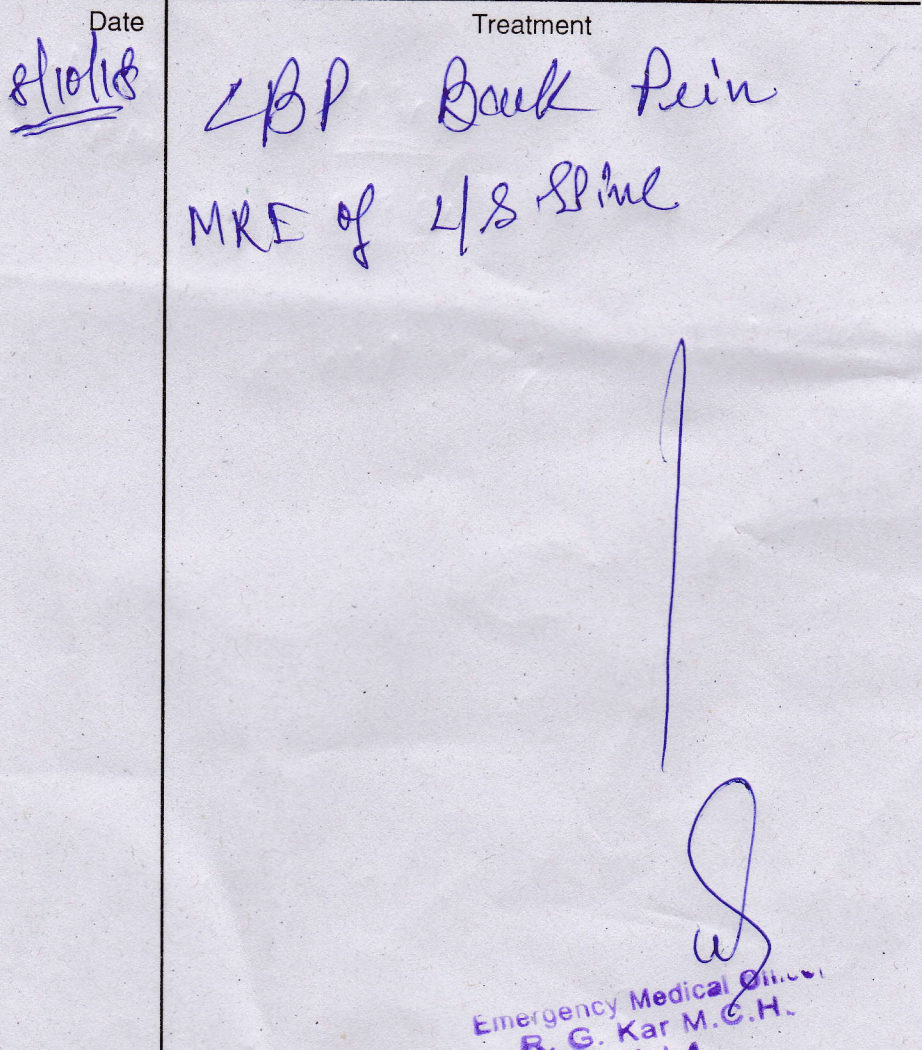 Date Treatment
8/10/18 LBP Back Pain
MRI of L/S Spine
Emergency Medical Officer
R. G. Kar M.C.H.